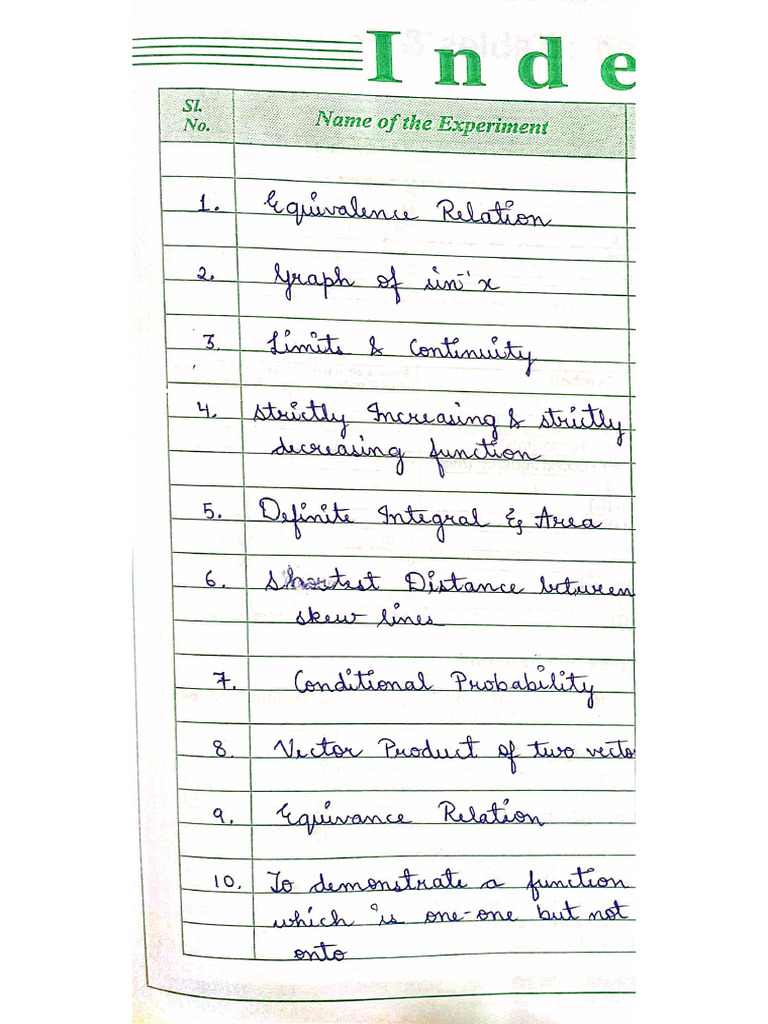 Inde
Sl.
No.
Name of the Experiment
1. Equivalence Relation
2. Graph of sin⁻¹x
3. Limits & Continuity
4. Strictly Increasing & strictly
decreasing function
5. Definite Integral & Area
6. Shortest Distance between
skew lines
7. Conditional Probability
8. Vector Product of two vecto
9. Equivance Relation
10. To demonstrate a function
which is one-one but not
onto